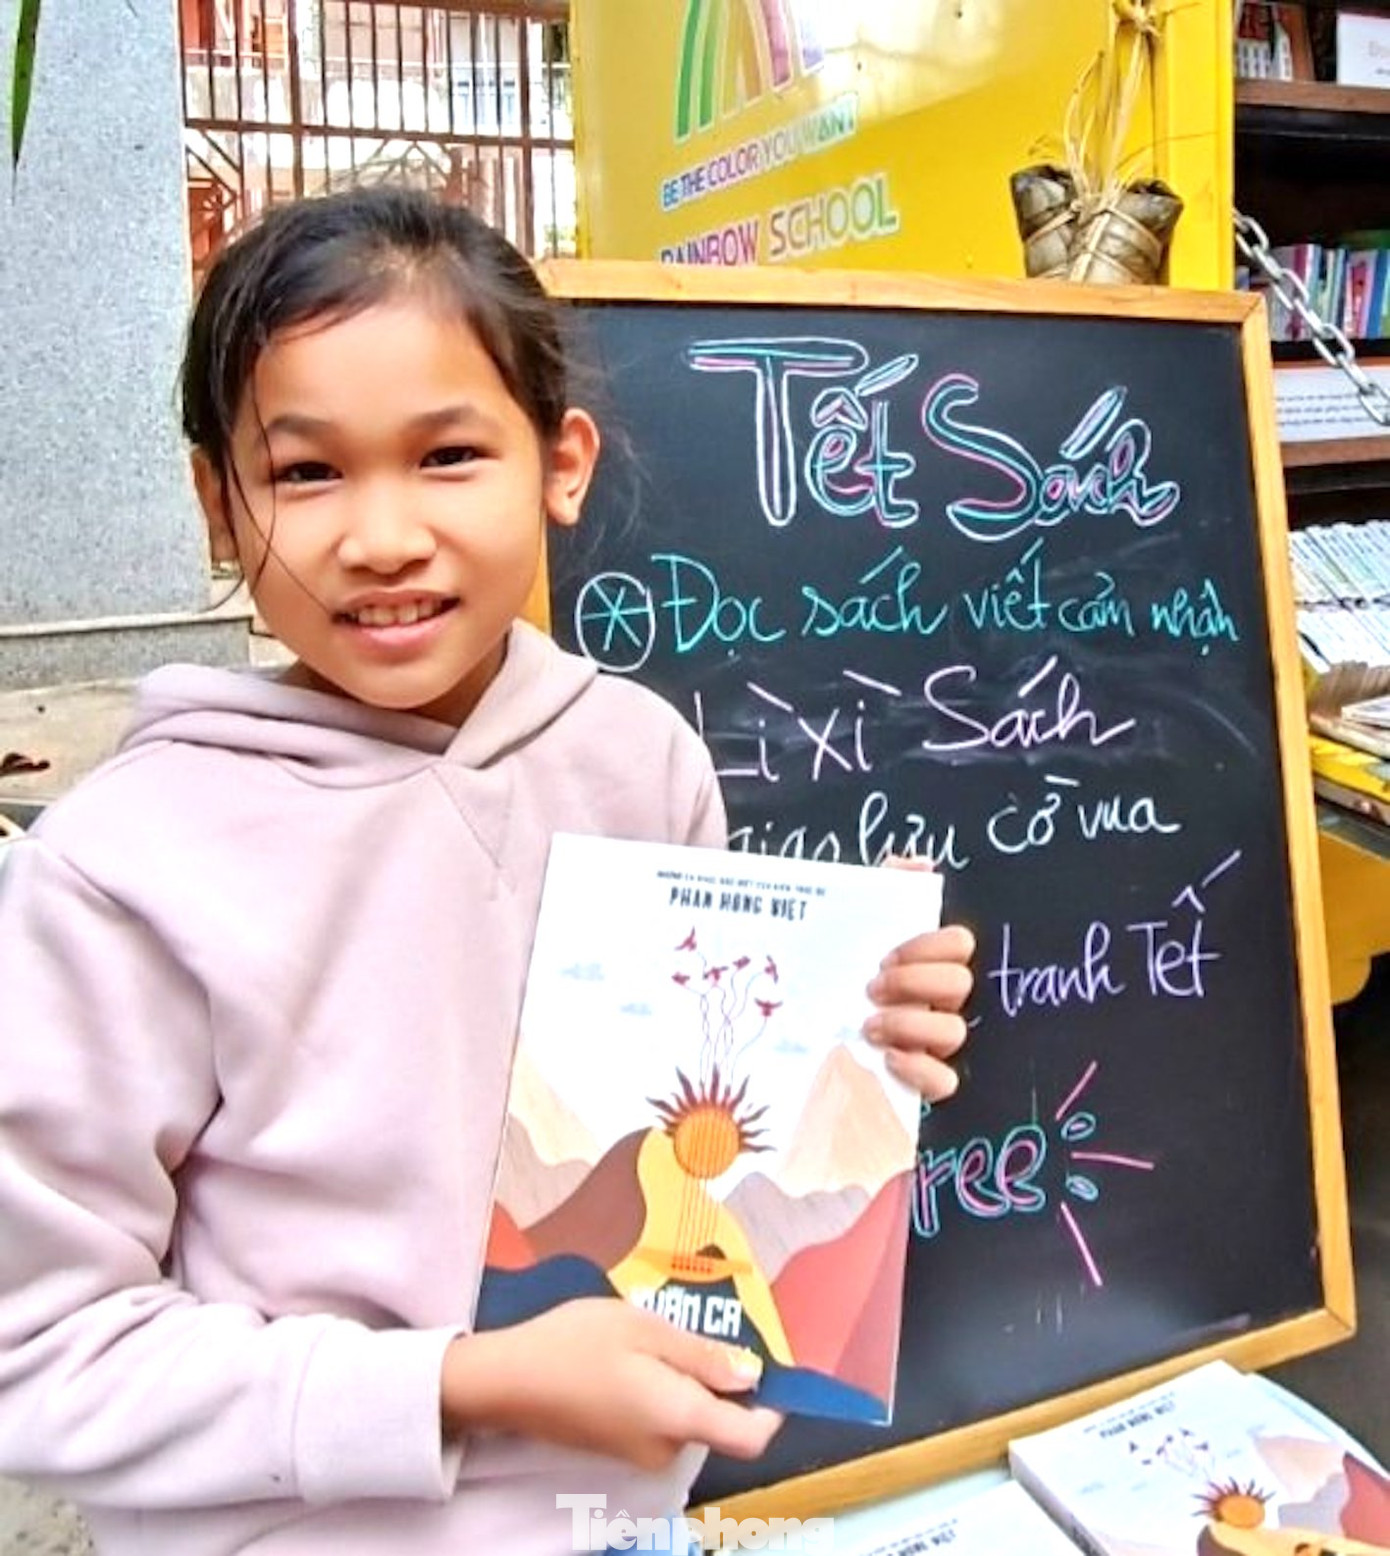 BE THE COLOR YOU WANT
RAINBOW SCHOOL
Tết Sách
Đọc sách viết cảm nhận
Lì xì Sách
giao lưu cờ vua
tranh Tết
ree
PHAN HỒNG VIỆT
XUÂN CA
PHAN HỒNG VIỆT
VIỆT
Tiênphong